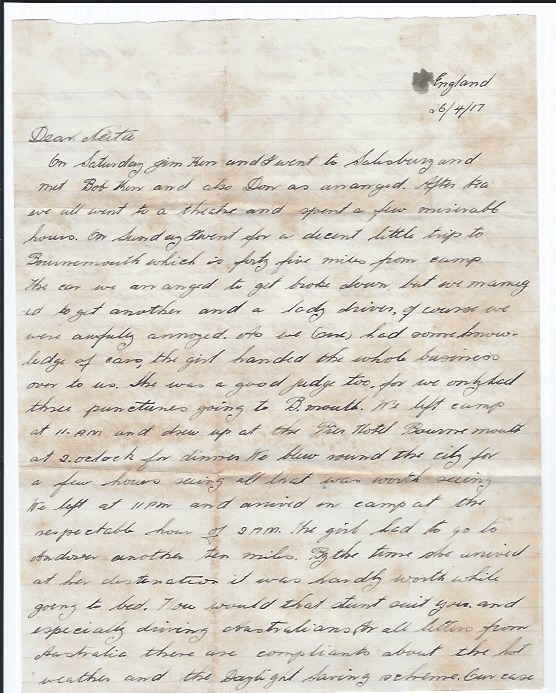 England
26/4/17
Dear Neita
On Saturday Jim Kerr and I went to Salisbury and
met Bob Kerr and also Don as arranged. After tea
we all went to a theatre and spent a few miserable
hours. On Sunday I went for a decent little trip to
Bournemouth which is forty five miles from camp
The car we arranged to get broke down, but we manag
ed to get another and a lady driver, of course we
were awfully annoyed. As we (one) had some know-
ledge of cars, the girl handed the whole business
over to us. She was a good judge too, for we only had
three punctures going to B.mouth. We left camp
at 11. AM and drew up at the Pier Hotel Bournemouth
at 2.oclock for dinner We blew round the city for
a few hours seeing all that was worth seeing
We left at 11 PM and arrived in camp at the
respectable hour of 3 AM. The girl had to go to
Andover another ten miles. By the time she arrived
at her destination it was hardly worth while
going to bed. How would that stunt suit you. and
especially driving Australians. In all letters from
Australia there are compliants about the hot
weather and the Daylight saving scheme. Our case